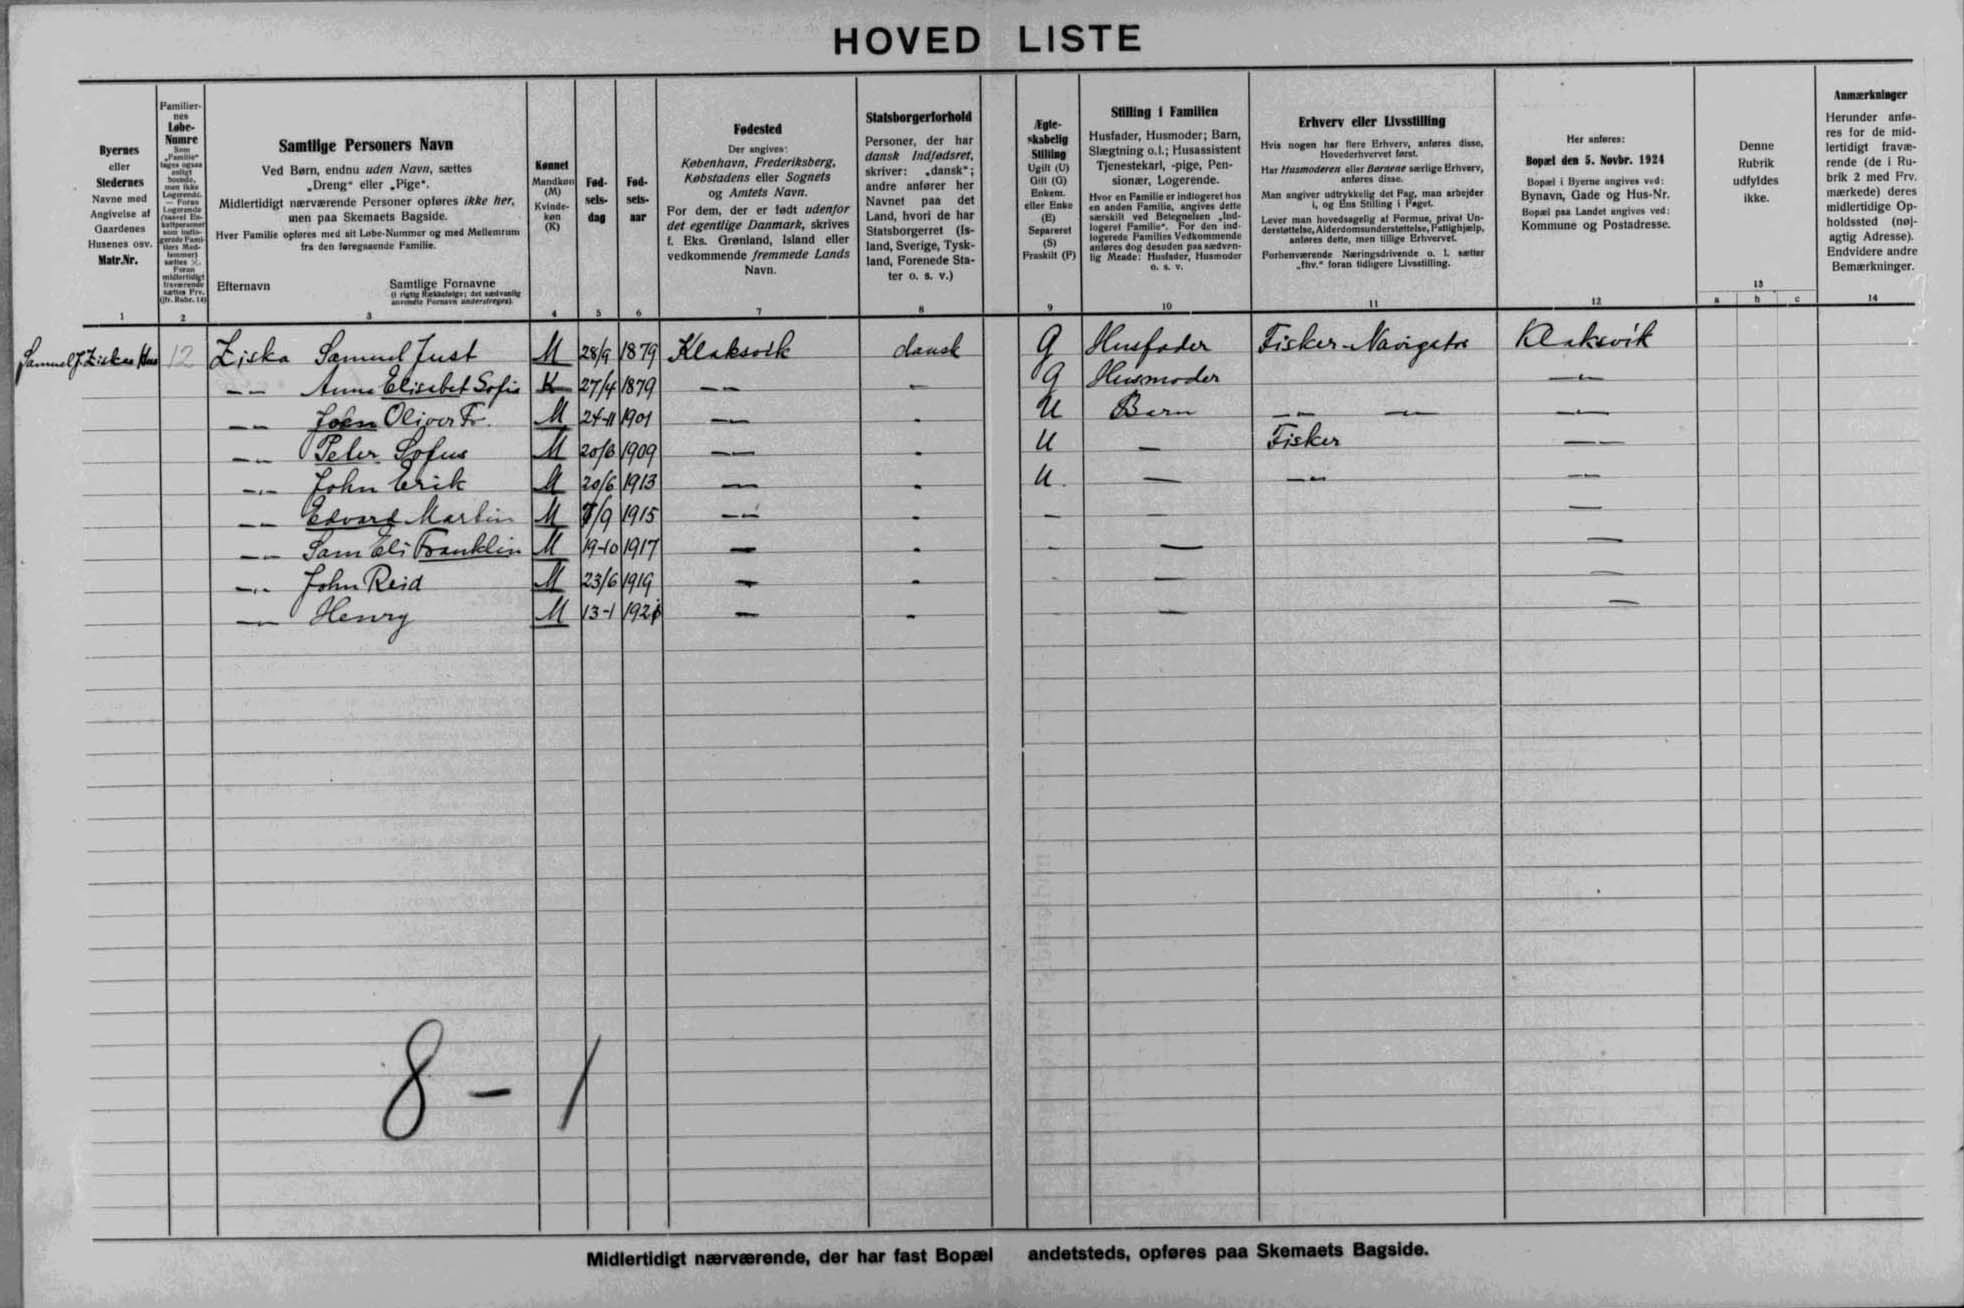 HOVED LISTE
Byernes
eller
Stedernes
Navne med
Angivelse af
Gaardenes
Husenes osv.
Matr.Nr.
1
Familier-
nes
Løbe-
Numre
Som
„Familie“
tages ogsaa
enligt
boende,
men ikke
Logerende.
— Foran
2
Samtlige Personers Navn
Ved Børn, endnu uden Navn, sættes
„Dreng“ eller „Pige“.
Midlertidigt nærværende Personer opføres ikke her,
men paa Skemaets Bagside.
Hver Familie opføres med sit Løbe-Nummer og med Mellemrum
fra den foregaaende Familie.
Efternavn Samtlige Fornavne
(i rigtig Rækkefølge; det sædvanlig
anvendte Fornavn understreges).
3
Kønnet
Mandkøn
(M)
Kvinde-
køn
(K)
4
Fød-
sels-
dag
5
Fød-
sels-
aar
6
Fødested
Der angives:
København, Frederiksberg,
Købstadens eller Sognets
og Amtets Navn.
For dem, der er født udenfor
det egentlige Danmark, skrives
f. Eks. Grønland, Island eller
vedkommende fremmede Lands
Navn.
7
Statsborgerforhold
Personer, der har
dansk Indfødsret,
skriver: „dansk“;
andre anfører her
Navnet paa det
Land, hvori de har
Statsborgerret (Is-
land, Sverige, Tysk-
land, Forenede Sta-
ter o. s. v.)
8
Ægte-
skabelig
Stilling
Ugift (U)
Gift (G)
Enkem.
eller Enke
(E)
Separeret
(S)
Fraskilt (F)
9
Stilling i Familien
Husfader, Husmoder; Barn,
Slægtning o.l.; Husassistent
Tjenestekarl, -pige, Pen-
sionær, Logerende.
Hvor en Familie er indlogeret hos
en anden Familie, angives dette
særskilt ved Betegnelsen „Ind-
logeret Familie“. For den ind-
logerede Families Vedkommende
anføres dog desuden paa sædvan-
lig Maade: Husfader, Husmoder
o. s. v.
10
Erhverv eller Livsstilling
Hvis nogen har flere Erhverv, anføres disse,
Hovederhvervet først.
Har Husmoderen eller Børnene særlige Erhverv,
anføres disse.
Man angiver udtrykkelig det Fag, man arbejder
i, og Ens Stilling i Faget.
Lever man hovedsagelig af Formue, privat Un-
derstøttelse, Alderdomsunderstøttelse, Fattighjælp,
anføres dette, men tillige Erhvervet.
Forhenværende Næringsdrivende o. l. sætter
„fhv.“ foran tidligere Livsstilling.
11
Her anføres:
Bopæl den 5. Novbr. 1924
Bopæl i Byerne angives ved:
Bynavn, Gade og Hus-Nr.
Bopæl paa Landet angives ved:
Kommune og Postadresse.
12
Denne
Rubrik
udfyldes
ikke.
13
a b c
Anmærkninger
Herunder anfø-
res for de mid-
lertidigt fravæ-
rende (de i Ru-
brik 2 med Frv.
mærkede) deres
midlertidige Op-
holdssted (nøj-
agtig Adresse).
Endvidere andre
Bemærkninger.
14
Samuel J. Ziskas Hus 12 Ziska Samuel Just M 28/9 1879 Klaksvik dansk G Husfader Fisker-Navigatør Klaksvik
—„— Anna Elisabet Sofie K 27/4 1879 —„— — G Husmoder —„—
—„— Joen Oliver Fr. M 24-11 1901 —„— - U Barn —„— —„— —„—
—„— Peter Sofus M 20/6 1909 —„— - U — Fisker —„—
—„— John Erik M 20/6 1913 —„— - U. — —„— —„—
—„— Edvard Martin M 7/9 1915 —„— - — — —
—„— Sam Eli Franklin M 19-10 1917 — - - — —
—„— John Reid M 23/6 1919 — - - — —
—„— Henry M 13-1 1921 — - - — —
8 - 1
Midlertidigt nærværende, der har fast Bopæl andetsteds, opføres paa Skemaets Bagside.